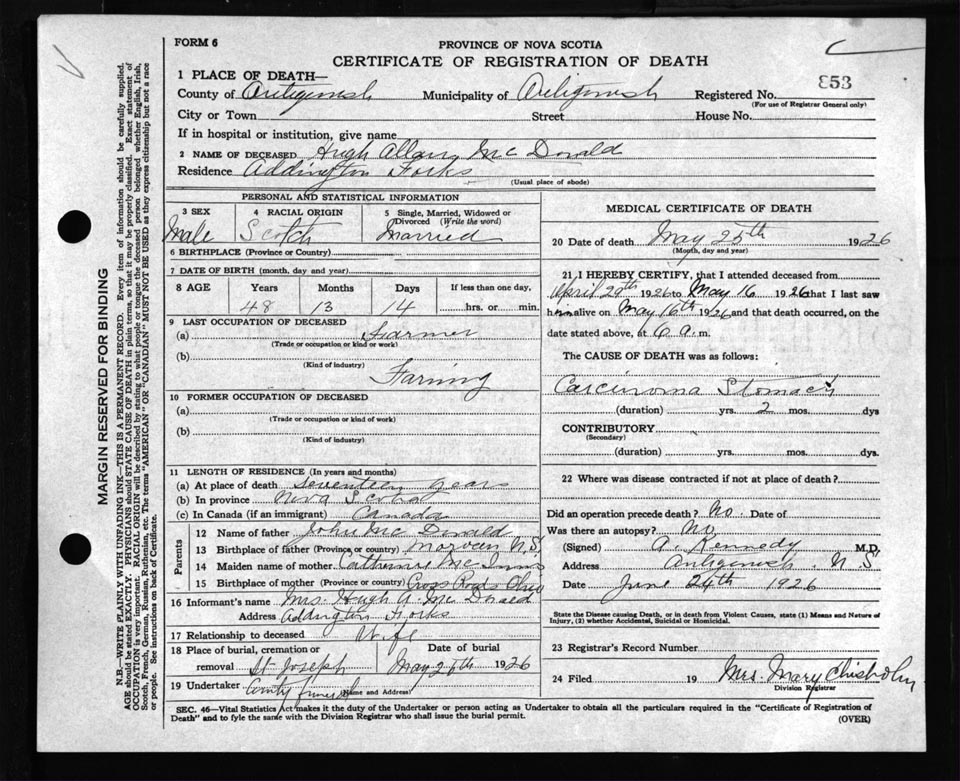 FORM 6
PROVINCE OF NOVA SCOTIA
CERTIFICATE OF REGISTRATION OF DEATH
853
1 PLACE OF DEATH—
County of Antigonish Municipality of Antigonish Registered No.
(For use of Registrar General only)
City or Town Street House No.
If in hospital or institution, give name
2 NAME OF DECEASED Hugh Allan Mc Donald
Residence Addington Forks
(Usual place of abode)
PERSONAL AND STATISTICAL INFORMATION
3 SEX 4 RACIAL ORIGIN 5 Single, Married, Widowed or Divorced (Write the word)
Male Scotch Married
6 BIRTHPLACE (Province or Country)
7 DATE OF BIRTH (month, day and year)
8 AGE Years Months Days If less than one day,
48 13 14 hrs. or min.
9 LAST OCCUPATION OF DECEASED
(a) Farmer
(Trade or occupation or kind or work)
(b)
(Kind of industry)
Farming
10 FORMER OCCUPATION OF DECEASED
(a)
(Trade or occupation or kind of work)
(b)
(Kind of industry)
11 LENGTH OF RESIDENCE (In years and months)
(a) At place of death seventeen years
(b) In province Nova Scotia
(c) In Canada (if an immigrant) Canada
Parents
12 Name of father John Mc Donald
13 Birthplace of father (Province or country) Morven N.S.
14 Maiden name of mother Catherine Mc Innis
15 Birthplace of mother (Province or country) Cross Roads Ohio
16 Informant's name Mrs. Hugh A. Mc Donald
Address Addington Forks
17 Relationship to deceased Wife
18 Place of burial, cremation or removal St Joseph
Date of burial May 1926
19 Undertaker County funeral
Name and Address)
MEDICAL CERTIFICATE OF DEATH
20 Date of death May 25th 1926
(Month, day and year)
21 I HEREBY CERTIFY, that I attended deceased from
April 29th 1926 to May 16 1926 that I last saw
him alive on May 16th 1926 and that death occurred, on the
date stated above, at 6 a. m.
The CAUSE OF DEATH was as follows:
Carcinoma Stomach
(duration) yrs. 2 mos. dys
CONTRIBUTORY
(Secondary)
(duration) yrs. mos. dys.
22 Where was disease contracted if not at place of death?
Did an operation precede death? No. Date of
Was there an autopsy? No
(Signed) A. Kennedy M.D.
Address Antigonish N.S
Date June 24th 1926
State the Disease causing Death, or in death from Violent Causes, state (1) Means and Nature of
Injury, (2) whether Accidental, Suicidal or Homicidal.
23 Registrar's Record Number
24 Filed 19 Mrs. Mary Chisholm
Division Registrar
SEC. 46—Vital Statistics Act makes it the duty of the Undertaker or person acting as Undertaker to obtain all the particulars required in the "Certificate of Registration of
Death" and to fyle the same with the Division Registrar who shall issue the burial permit.
(OVER)
MARGIN RESERVED FOR BINDING
N.B.—WRITE PLAINLY WITH UNFADING INK—THIS IS A PERMANENT RECORD. Every item of information should be carefully supplied.
AGE should be stated EXACTLY. PHYSICIANS should STATE CAUSE OF DEATH in plain terms, so that it may be properly classified. Exact statement of
OCCUPATION is very important. RACIAL ORIGIN will be described by stating to what people or tongue the deceased person belonged whether English, Irish,
Scotch, French, German, Russian, Ruthenian, etc. The terms "AMERICAN" OR "CANADIAN" MUST NOT BE USED as they express citizenship but not a race
or people. See instructions on back of Certificate.